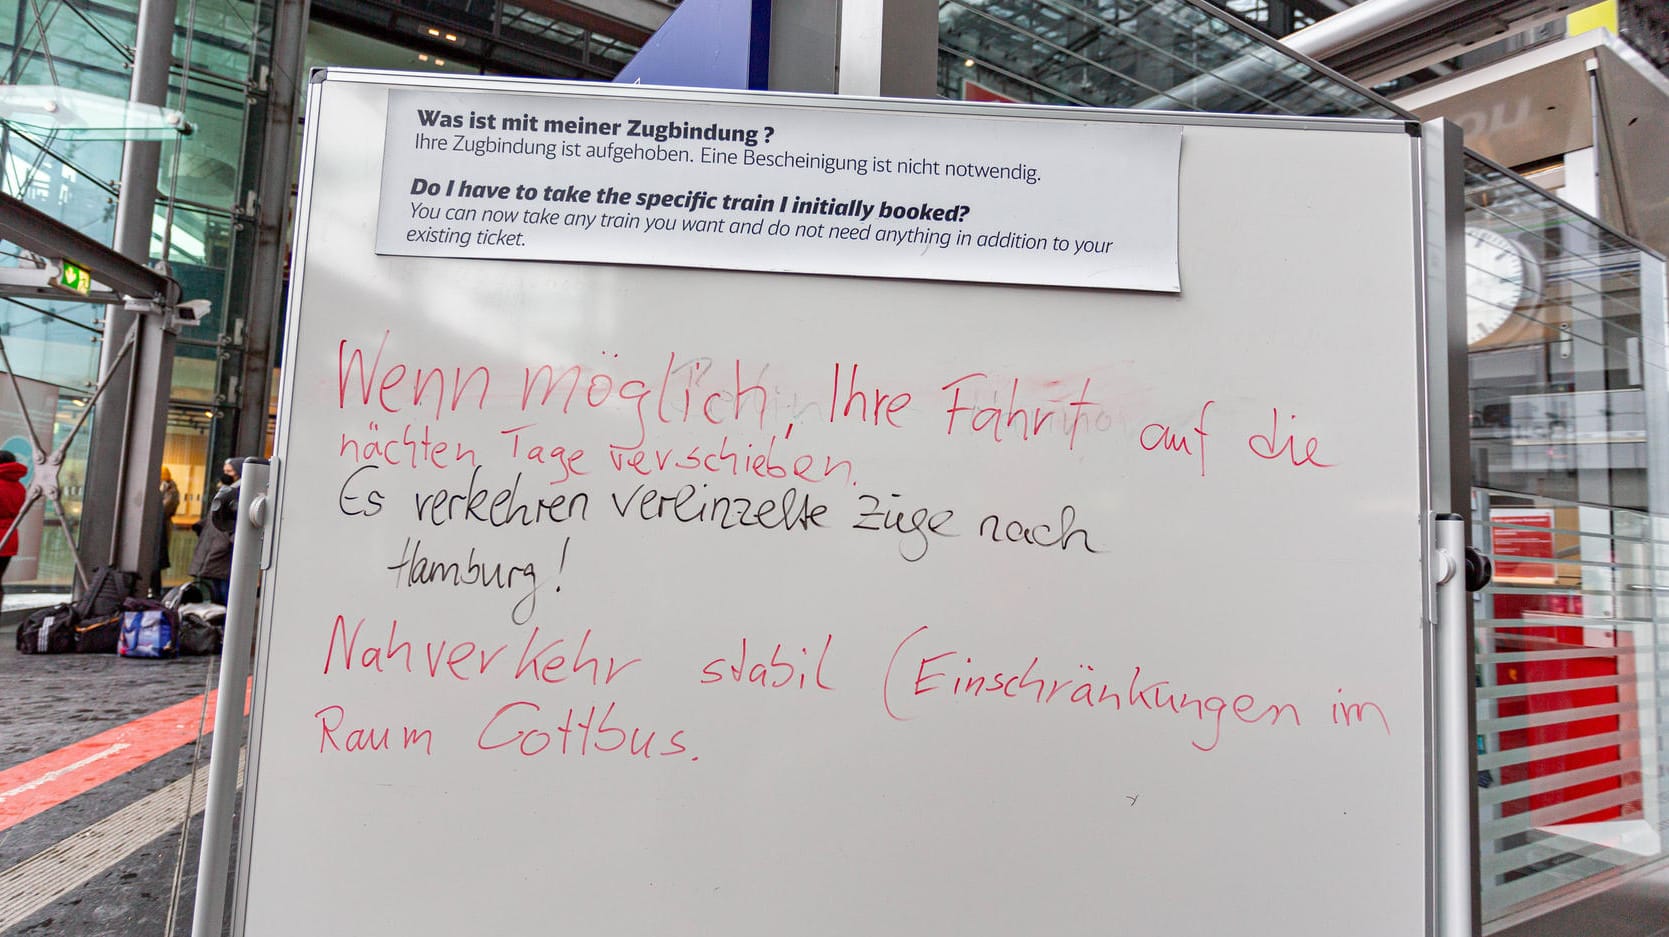 Was ist mit meiner Zugbindung ?
Ihre Zugbindung ist aufgehoben. Eine Bescheinigung ist nicht notwendig.
Do I have to take the specific train I initially booked?
You can now take any train you want and do not need anything in addition to your
existing ticket.
Wenn möglich, Ihre Fahrt auf die
nächten Tage verschieben.
Es verkehren vereinzelte Züge nach
Hamburg!
Nahverkehr stabil (Einschränkungen im
Raum Cottbus.